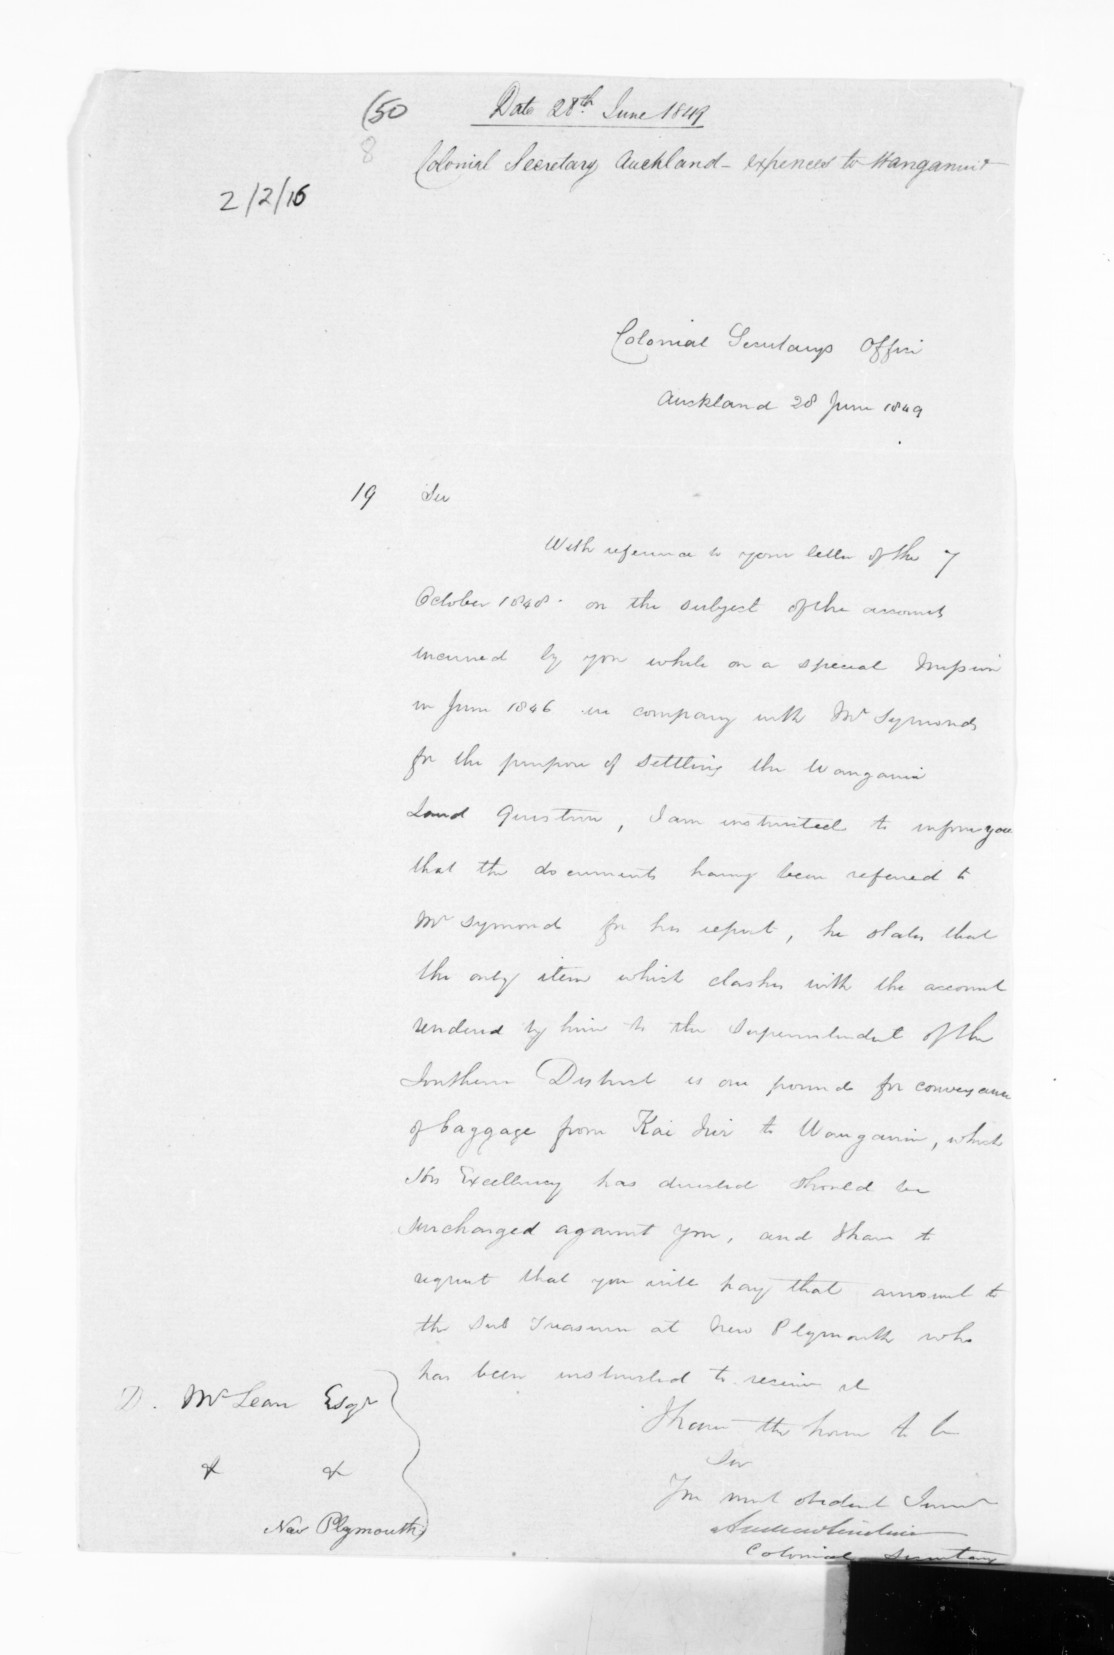 (50
Date 28th June 1849
8
Colonial Secretary Auckland - expences to Wanganui
2/2/16
Colonial Secretarys Office
Auckland 28 June 1849
19 Sir
With reference to your letter of the 7
October 1848 on the subject of the accounts
incurred by you while on a special Mission
in June 1846 in company with Mr Symonds
for the purpose of settling the Wanganui
Land Question, I am instructed to inform you
that the documents having been referred to
Mr Symonds for his report, he states that
the only item which clashes with the account
rendered by him to the Superintendent of the
Southern District is one pound for conveyance
of baggage from Kai Iwi to Wanganui, which
His Excellency has directed should be
surcharged against you, and I have to
request that you will pay that amount to
the Sub Treasurer at New Plymouth who
has been instructed to receive it
I have the honor to be
Sir
Your most obedient Servant
Andrew Sinclair
Colonial Secretary
D. McLean Esqr
& &
New Plymouth